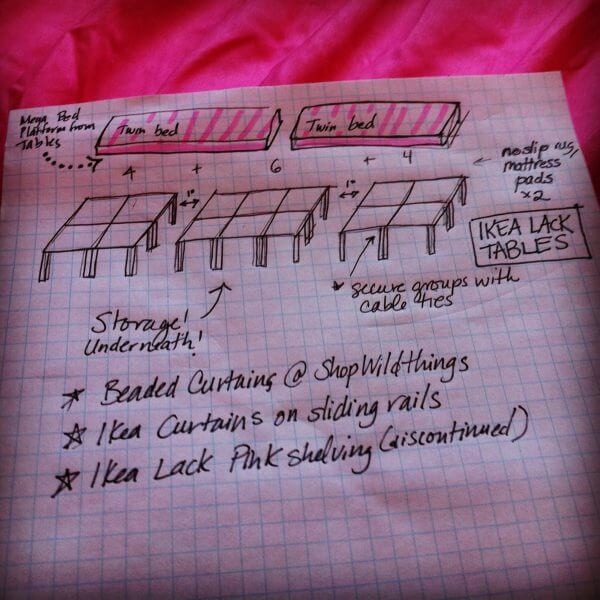 Mega Bed
Platform from
Tables
Twin bed
Twin bed
4 + 6 + 4
no slip rug/
mattress
pads
x2
1"
1"
IKEA LACK
TABLES
* secure groups with
cable ties
Storage!
Underneath!
☆ Beaded Curtains @ ShopWildthings
☆ Ikea Curtains on sliding rails
☆ Ikea Lack Pink shelving (discontinued)